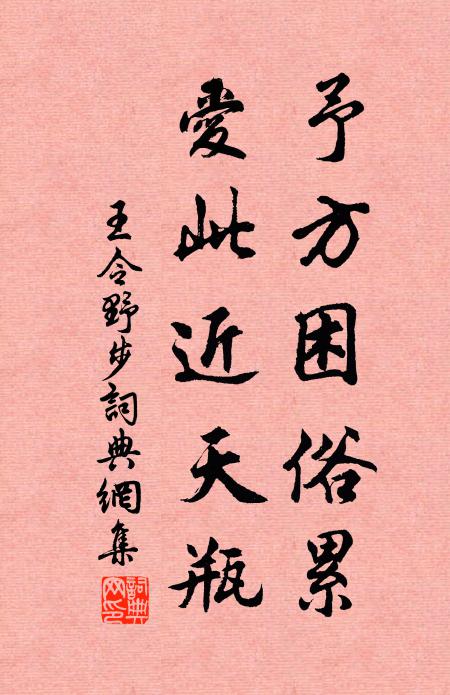 予方困俗累
愛此近天瓶
王令野步詞典網集
詞典網印